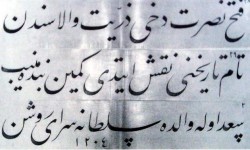 فتح نصرت دخی ذریت والاسندن
تام تاریخنی نقش ایتدی کمین بنده منیب
سعد اوله والده سلطانه سرای روشن
١٢٠٤